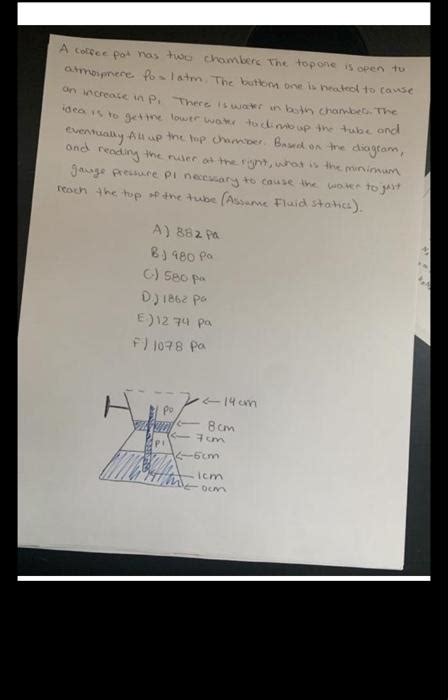 A coffee pot has two chambers The top one is open to
atmosphere Po = 1 atm. The bottom one is heated to cause
an increase in P1 There is water in both chambers. The
idea is to get the lower water to climb up the tube and
eventually fill up the top chamber. Based on the diagram,
and reading the ruler at the right, what is the minimum
gauge pressure P1 necessary to cause the water to just
reach the top of the tube (Assume Fluid statics).
A) 882 Pa
B) 980 Pa
C) 580 Pa
D) 1862 Pa
E) 1274 Pa
F) 1078 Pa
14cm
Po
8cm
7cm
P1
6cm
1cm
0cm